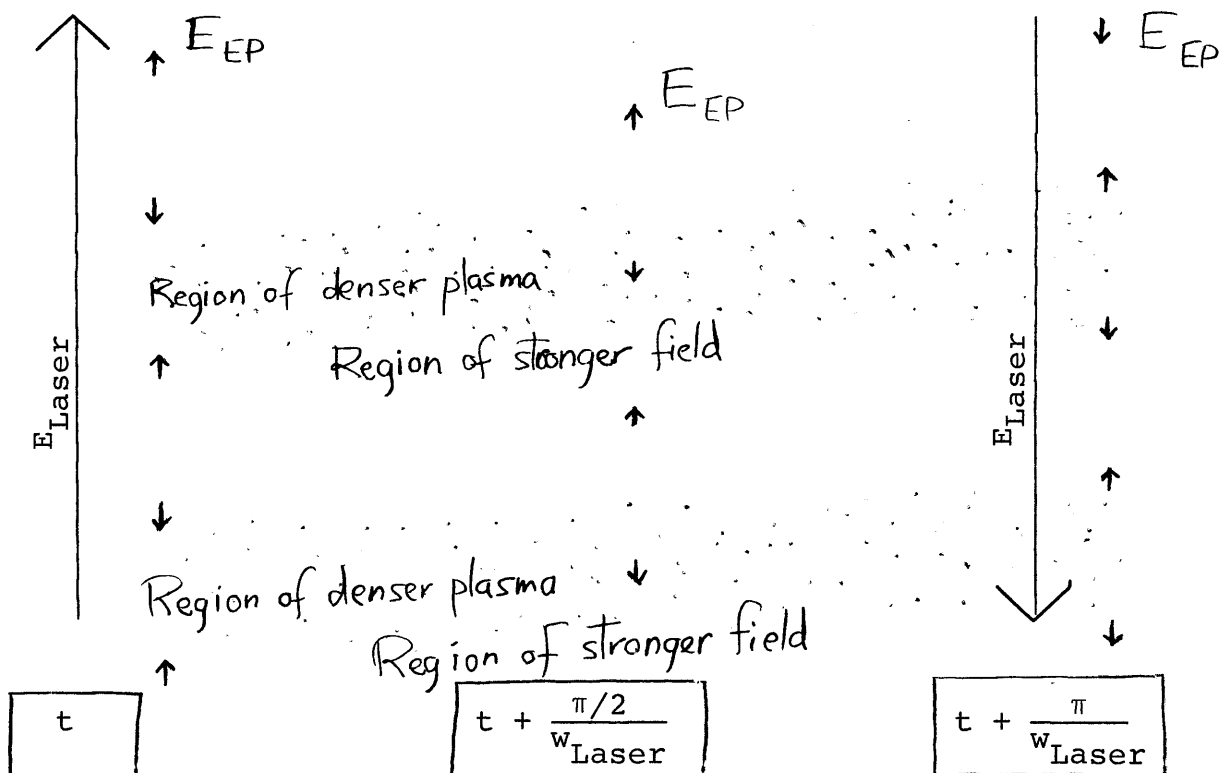 E_EP
E_EP
E_EP
Region of denser plasma
Region of stronger field
E_Laser
E_Laser
Region of denser plasma
Region of stronger field
t
t + π/2 / w_Laser
t + π / w_Laser